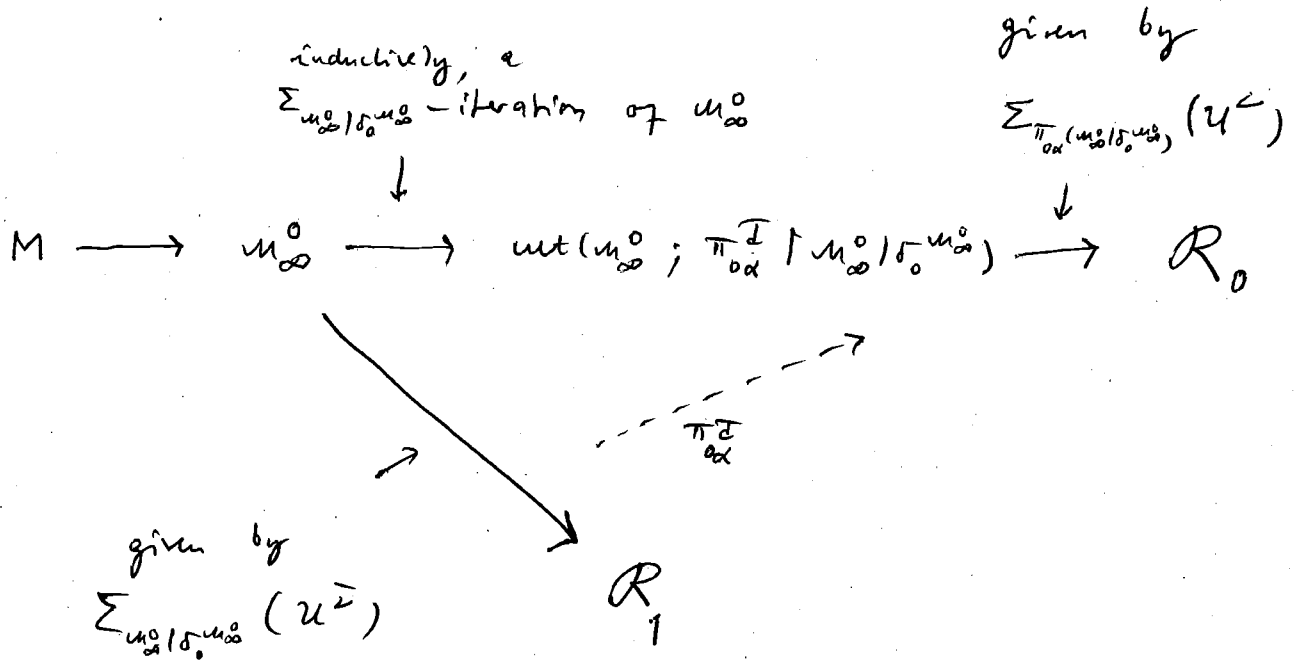 given by
inductively, a
Σ_{M^0_∞|δ_0^{M^0_∞}} - iteration of M^0_∞
Σ_{π_{0α}(M^0_∞|δ_0^{M^0_∞})} (U^<)
M → M^0_∞ → ult(M^0_∞ ; π^{\bar{T}}_{0α} ↾ M^0_∞|δ_0^{M^0_∞}) → R_0
given by
Σ_{M^0_∞|δ_0^{M^0_∞}} ()
R_1